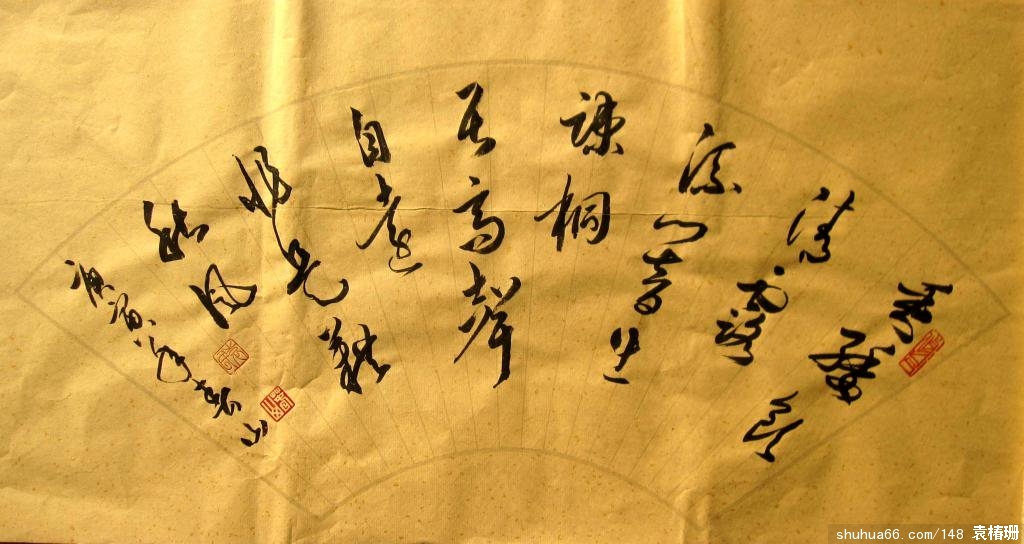 垂緌飲
清露
流響出
疎桐
居高聲
自遠
非是藉
秋風
庚寅年春山
shuhua66.com/148 袁椿珊